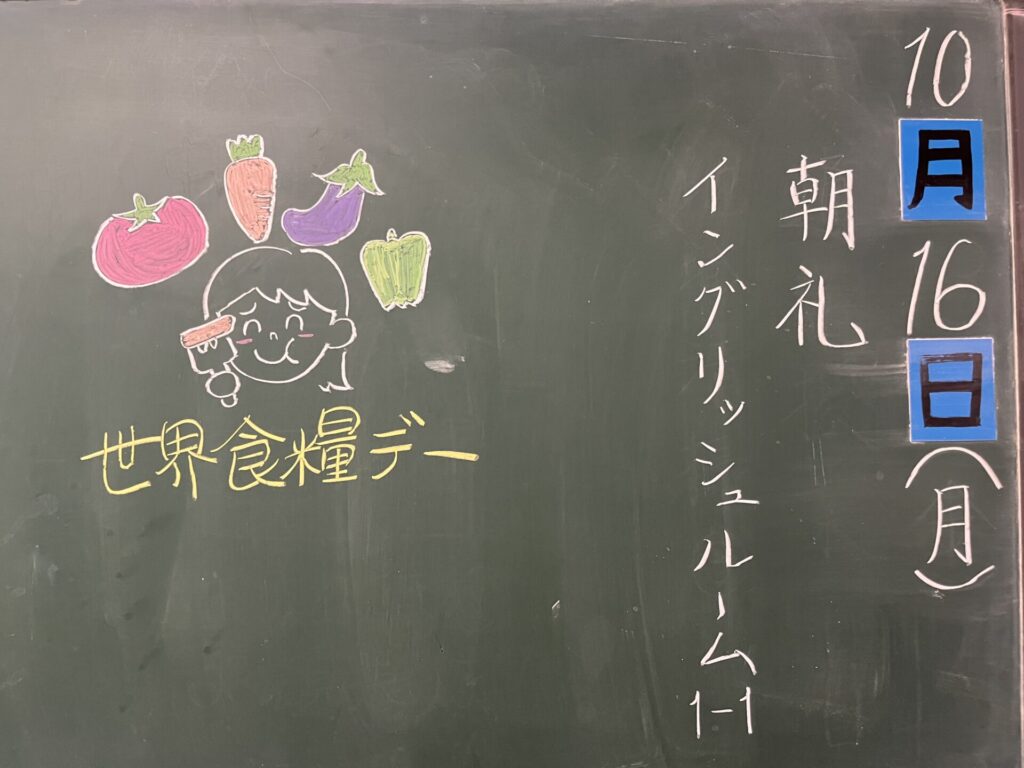 10月16日(月)
朝礼
イングリッシュルーム1-1
世界食糧デー